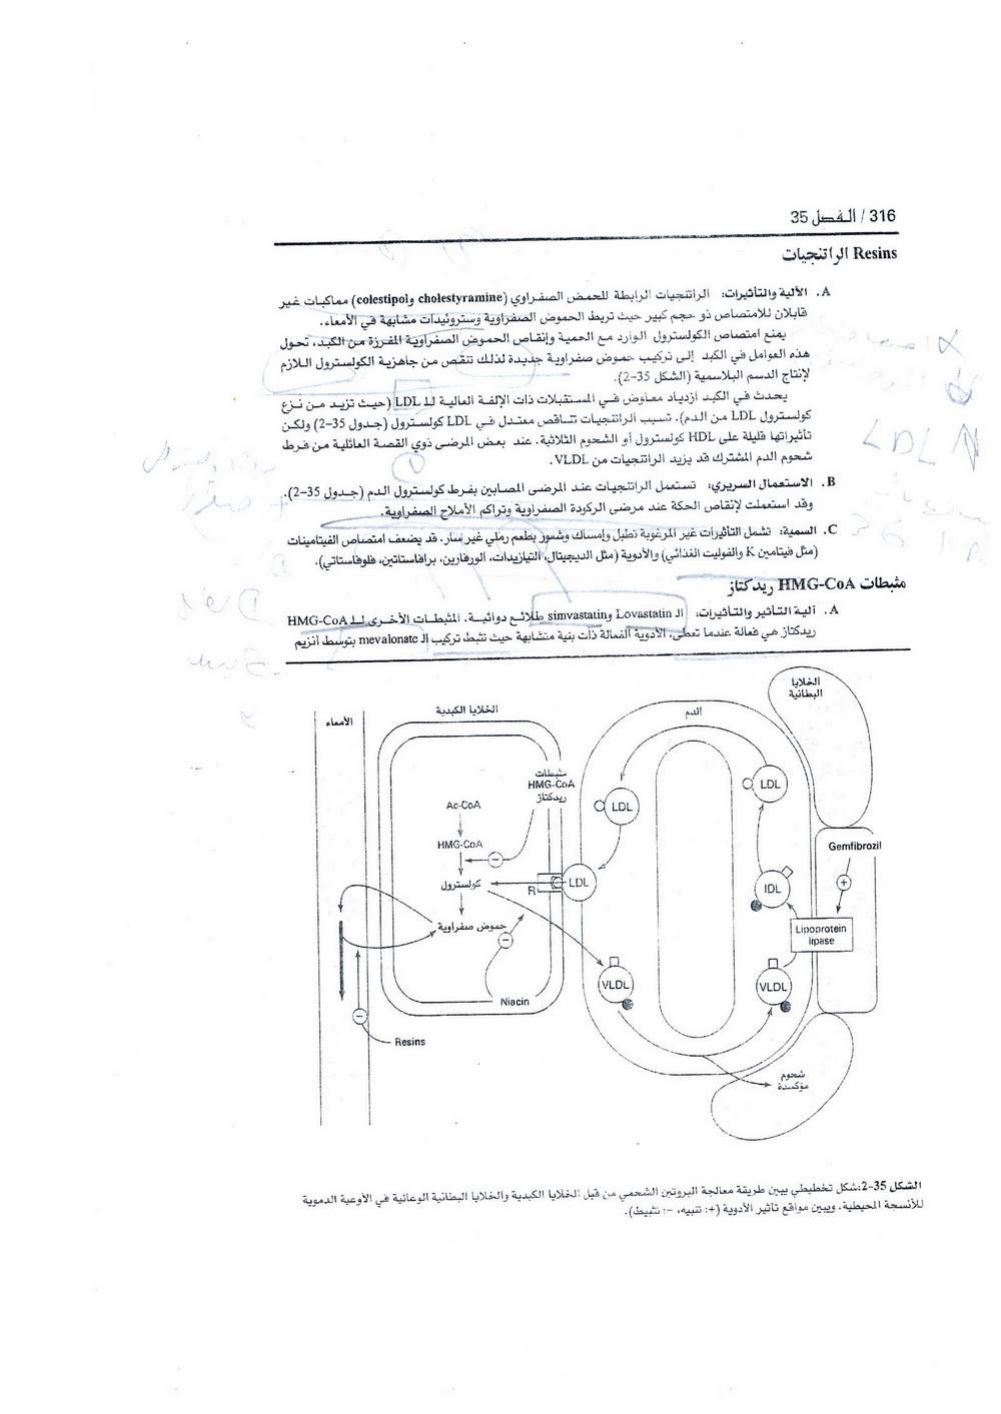 316 / الفصل 35
Resins الراتنجيات
A. الآلية والتأثيرات: الراتنجيات الرابطة للحمض الصفراوي (cholestyramine وcolestipol) مماكبات غير
قابلان للامتصاص ذو حجم كبير حيث تربط الحموض الصفراوية وستروئيدات مشابهة في الأمعاء.
يمنع امتصاص الكولسترول الوارد مع الحمية وإنقاص الحموض الصفراوية المفرزة من الكبد، تحول
هذه العوامل في الكبد إلى تركيب حموض صفراوية جديدة لذلك تنقص من جاهزية الكولسترول اللازم
لإنتاج الدسم البلاسمية (الشكل 35-2).
يحدث في الكبد ازدياد معاوض في المستقبلات ذات الإلفة العالية لـ LDL (حيث تزيد من نزع
كولسترول LDL من الدم). تسبب الراتنجيات تناقص معتدل في LDL كولسترول (جدول 35-2) ولكن
تأثيراتها قليلة على HDL كولسترول أو الشحوم الثلاثية. عند بعض المرضى ذوي القصة العائلية من فرط
شحوم الدم المشترك قد يزيد الراتنجيات من VLDL.
B. الاستعمال السريري: تستعمل الراتنجيات عند المرضى المصابين بفرط كولسترول الدم (جدول 35-2).
وقد استعملت لإنقاص الحكة عند مرضى الركودة الصفراوية وتراكم الأملاح الصفراوية.
C. السمية: تشمل التأثيرات غير المرغوبة تطبل وإمساك وشعور بطعم رملي غير سار. قد يضعف امتصاص الفيتامينات
(مثل فيتامين K والفوليت الغذائي) والأدوية (مثل الديجيتال، التيازيدات، الورفارين، برافاستاتين، فلوفاستاتي).
مثبطات HMG-CoA ريدكتاز
A. آلية التأثير والتأثيرات: الـ Lovastatin وsimvastatin طلائع دوائية. المثبطات الأخرى لـ HMG-CoA
ريدكتاز هي فعالة عندما تعطى، الأدوية الفعالة ذات بنية متشابهة حيث تثبط تركيب الـ mevalonate بتوسط أنزيم
الخلايا
البطانية
الدم
الخلايا الكبدية
الأمعاء
مثبطات
HMG-CoA
ريدكتاز
LDL
LDL
Ac-CoA
HMG-CoA
Gemfibrozil
+
−
كولسترول
R
LDL
IDL
Lipoprotein
lipase
حموض صفراوية
−
VLDL
VLDL
Niacin
−
Resins
شحوم
مؤكسدة
الشكل 35-2: شكل تخطيطي يبين طريقة معالجة البروتين الشحمي من قبل الخلايا الكبدية والخلايا البطانية الوعائية في الأوعية الدموية
للأنسجة المحيطية. ويبين مواقع تأثير الأدوية (+: تنبيه، -: تثبيط).